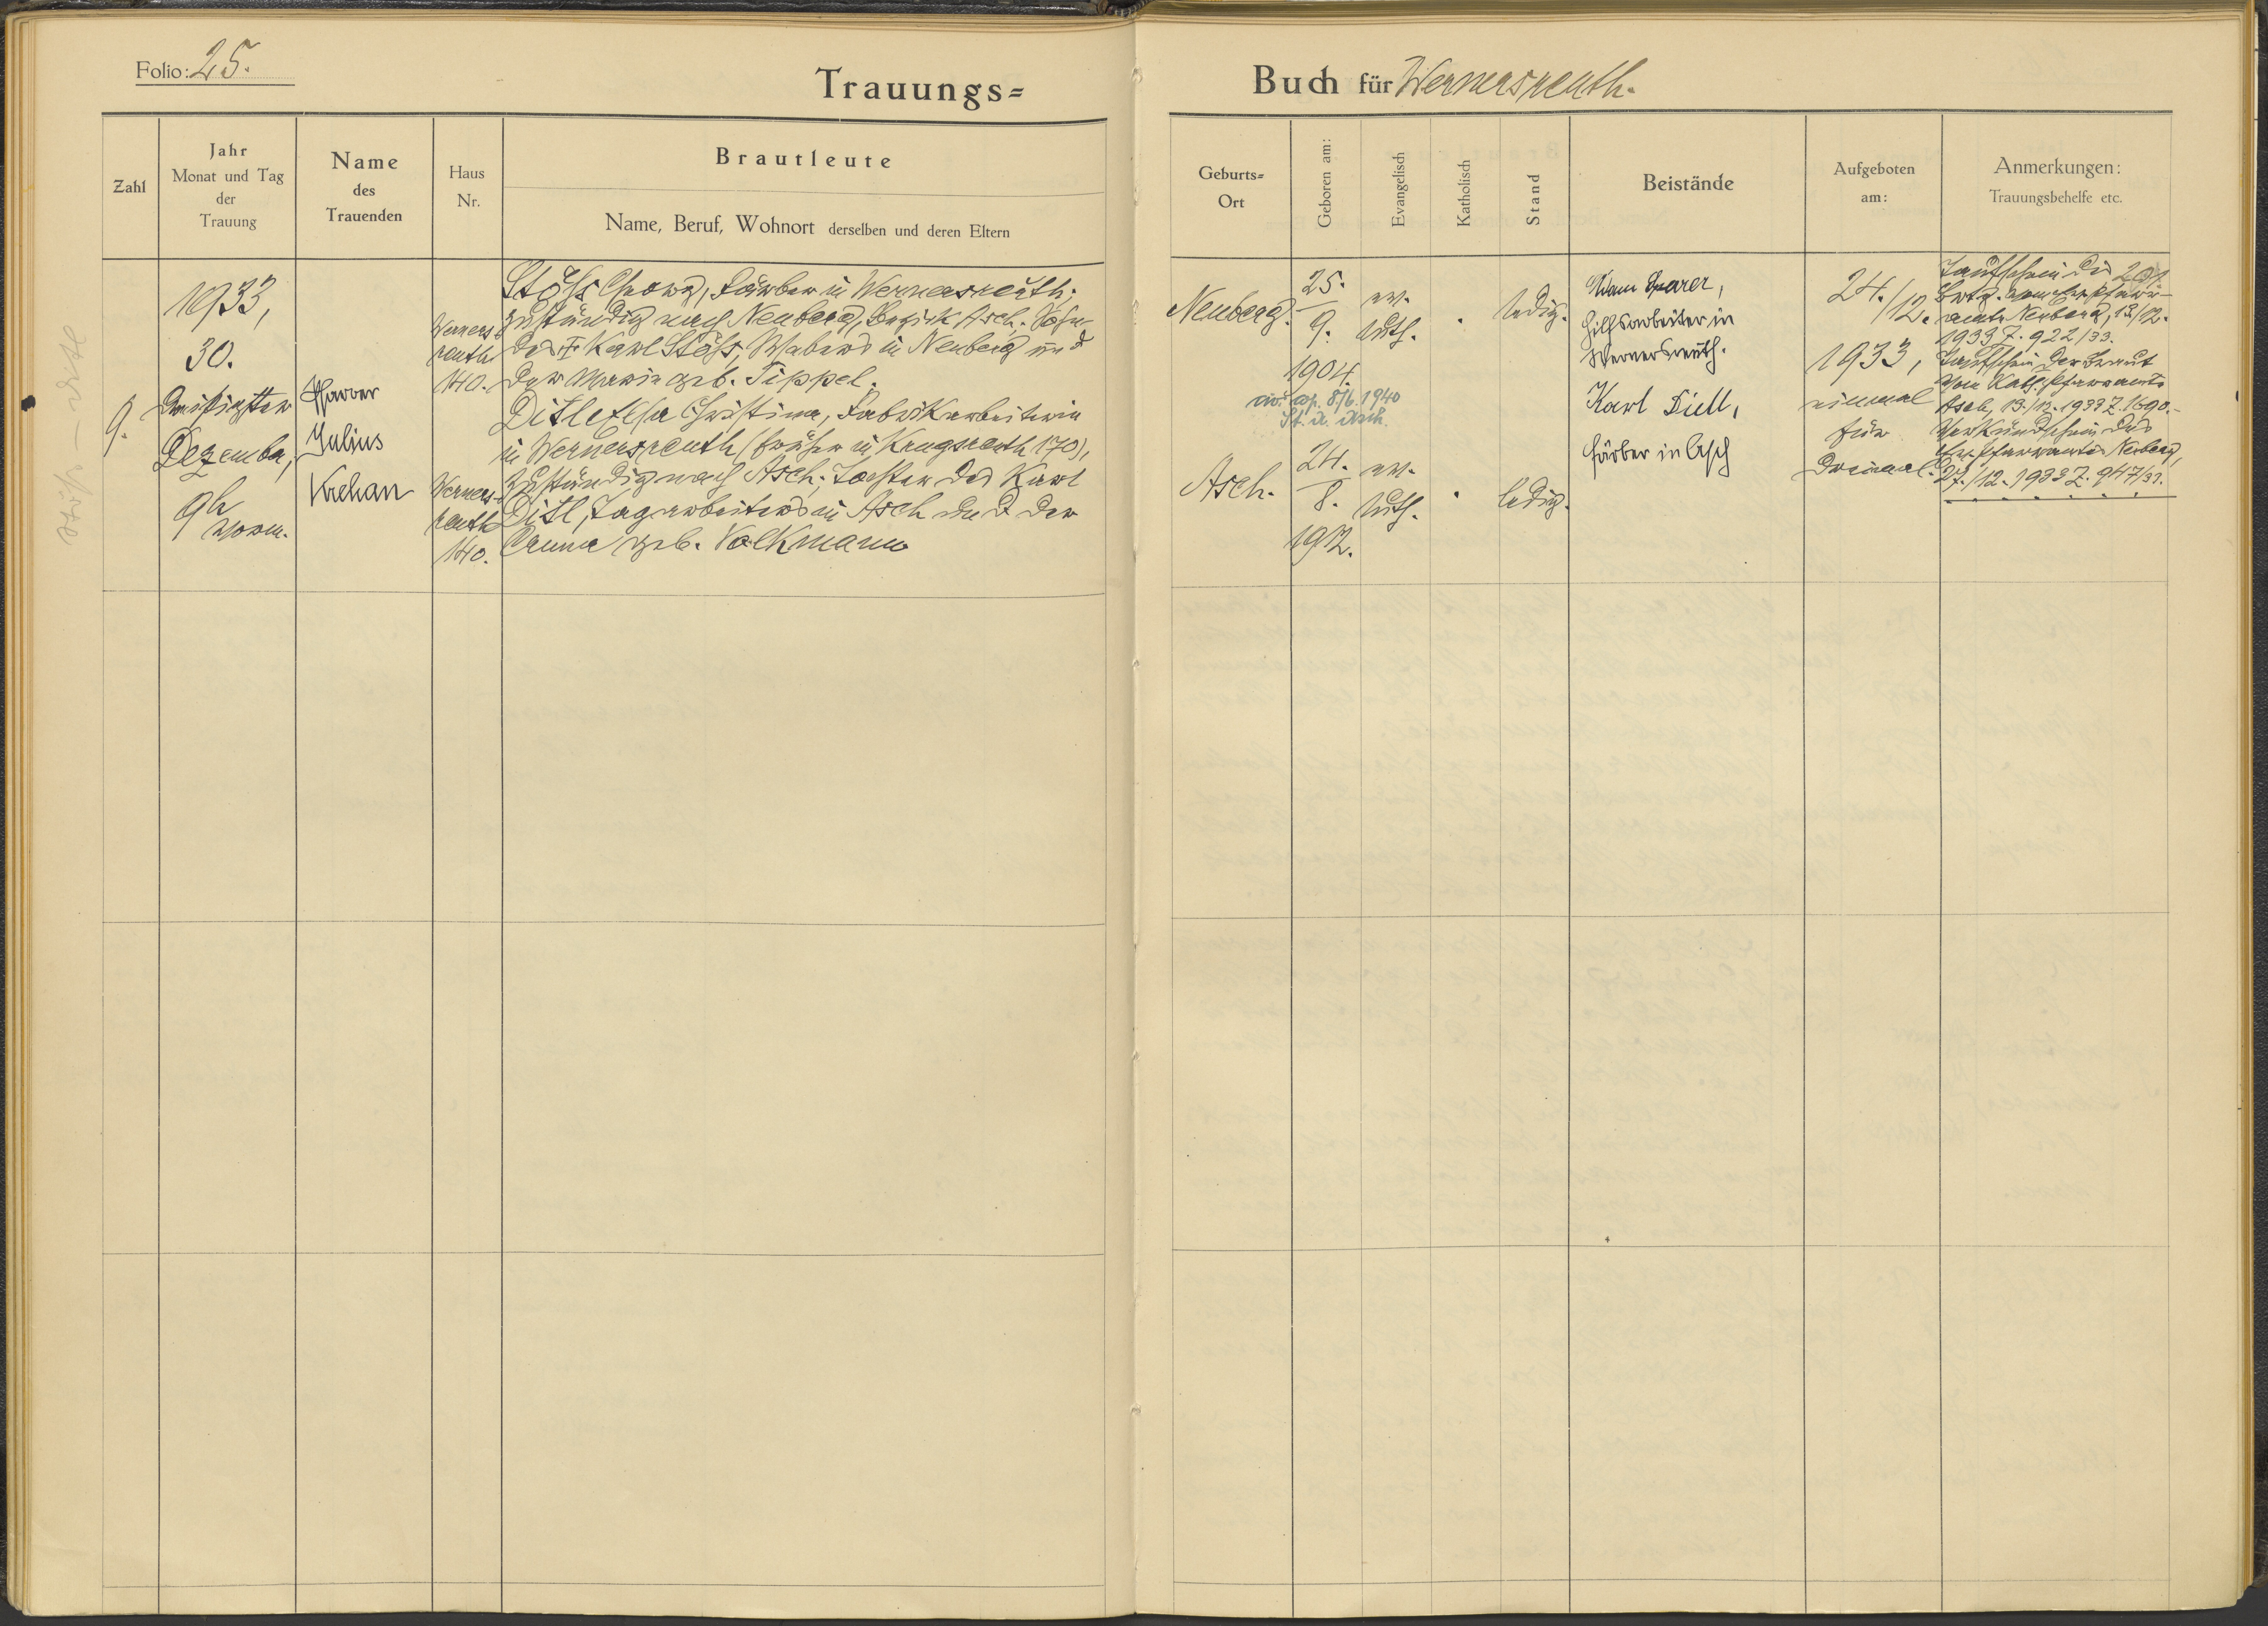 Folio: 25.
Trauungs=
Buch für Wernersreuth.
Zahl
Jahr
Monat und Tag
der
Trauung
Name
des
Trauenden
Haus
Nr.
Brautleute
Name, Beruf, Wohnort derselben und deren Eltern
Geburts=
Ort
Geboren am:
Evangelisch
Katholisch
Stand
Beistände
Aufgeboten
am:
Anmerkungen:
Trauungsbehelfe etc.
9.
1933,
30.
dreißigsten
Dezember,
9h
vorm.
Pfarrer
Julius
Krehan
Werners-
reuth
140.
Stöß Georg, Färber in Wernersreuth;
zuständig nach Neuberg, Bezirk Asch; Sohn
des † Karl Stöß, Webers in Neuberg und
der Maria geb. Tippel.
Neuberg.
25.
9.
1904.
ev.
luth.
ledig.
Werners-
reuth
140.
Ditl Elsa Christina, Fabrikarbeiterin
in Wernersreuth (früher in Krugsreuth 170),
zuständig nach Asch; Tochter des Karl
Ditl, Tagarbeiters in Asch und der
Anna geb. Volkmann
Asch.
8/6. 1940
St. A. Asch.
24.
8.
1912.
ev.
luth.
ledig.
Hilfsarbeiter in
Wernersreuth.
Karl
Färber in Asch
24./12.
1933,
einmal
für
dreimal.
Taufschein des
Bräutg. vom ev. Pfarr-
amte Neuberg, 13/12.
1933 Z. 922/33.
Taufschein der Braut
vom Kath. Pfarramte
Asch, 13./12. 1933 Z. 1690.
Verkündschein des
ev. Pfarramtes Neuberg,
27./12. 1933 Z. 947/33.